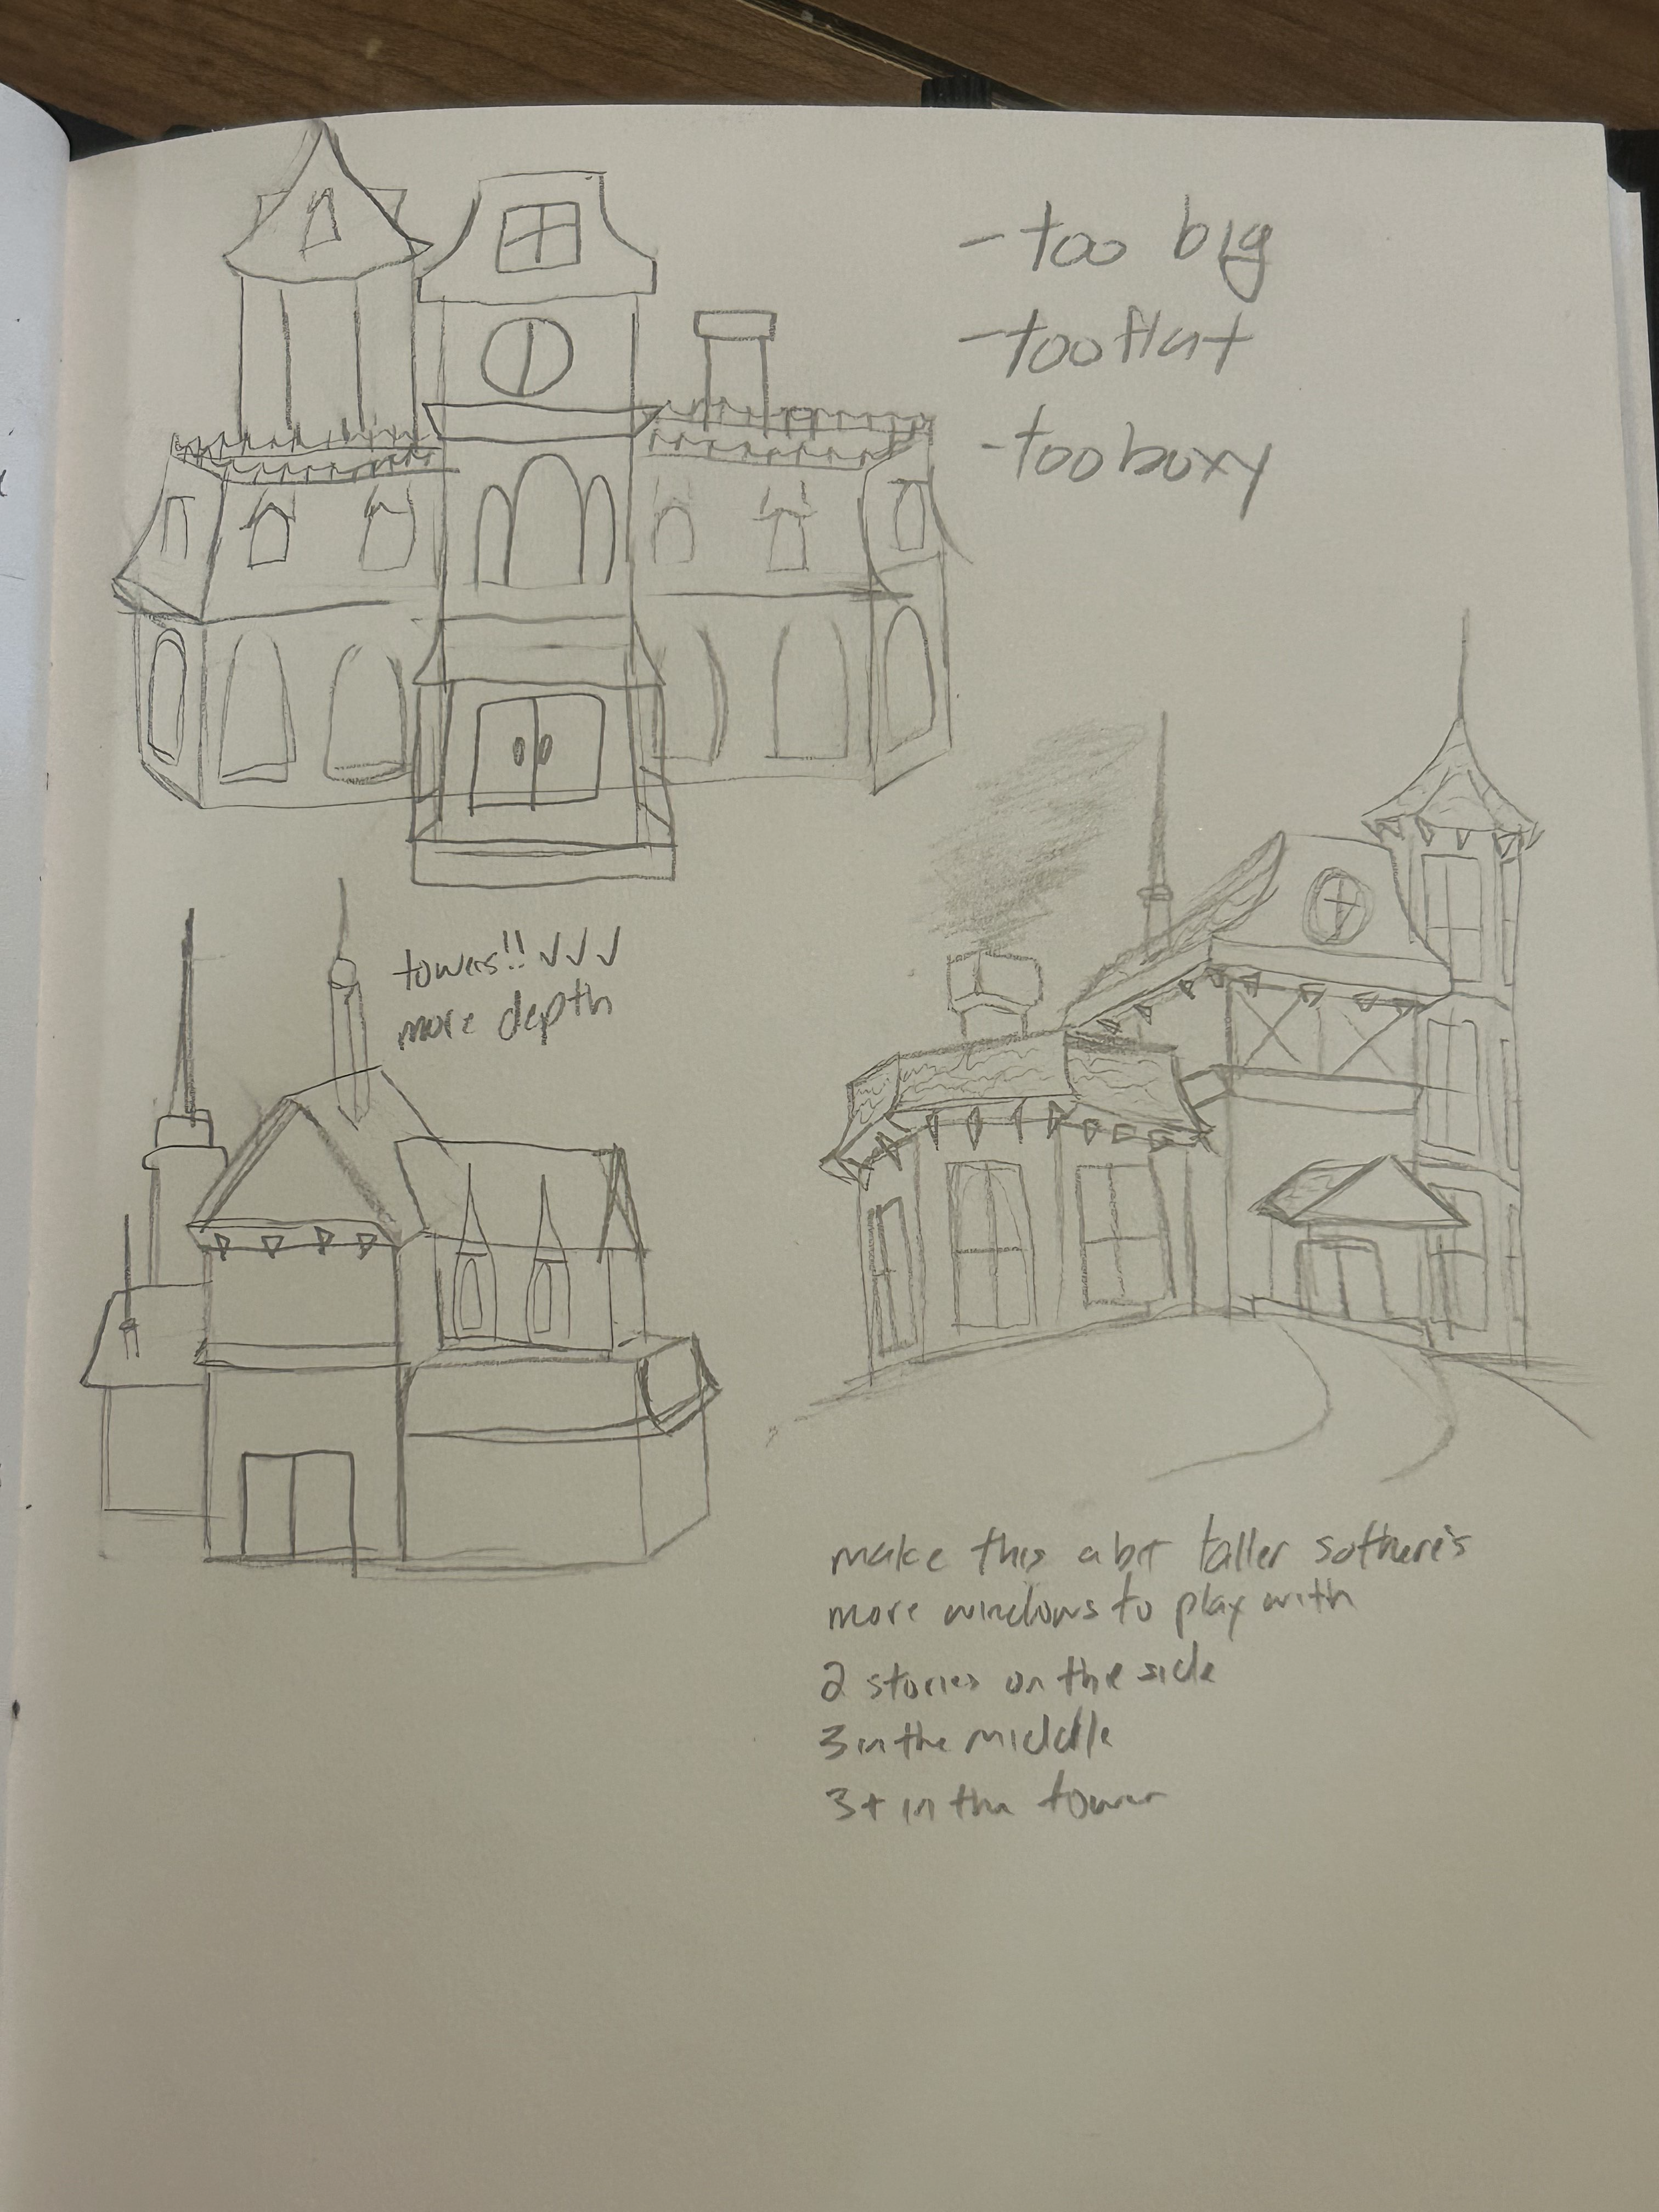 - too big
- too flat
- too boxy
towers!! ✓✓✓
more depth
make this a bit taller so there's
more windows to play with
2 stories on the side
3 in the middle
3+ in the tower